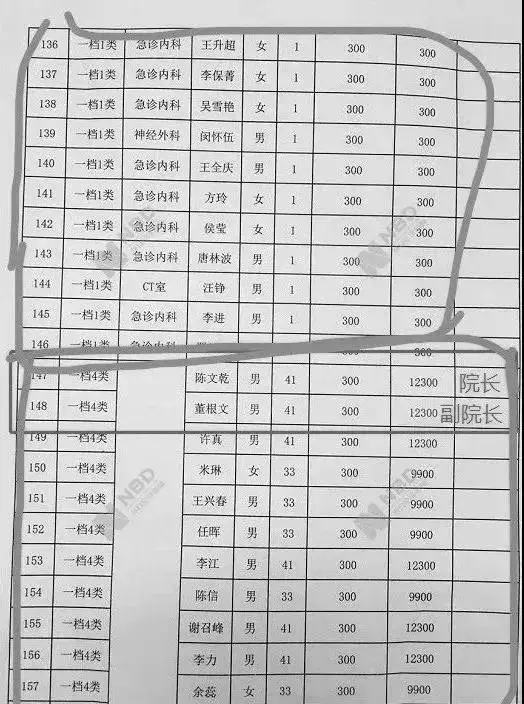 136 一档1类 急诊内科 王升超 女 1 300 300
137 一档1类 急诊内科 李保菁 女 1 300 300
138 一档1类 急诊内科 吴雪艳 女 1 300 300
139 一档1类 神经外科 闵怀伍 男 1 300 300
140 一档1类 急诊内科 王全庆 男 1 300 300
141 一档1类 急诊内科 方玲 女 1 300 300
142 一档1类 急诊内科 侯莹 女 1 300 300
143 一档1类 急诊内科 唐林波 男 1 300 300
144 一档1类 CT室 汪铮 男 1 300 300
145 一档1类 急诊内科 李进 男 1 300 300
146 一档1类 急诊内科 300
147 一档4类 陈文乾 男 41 300 12300 院长
148 一档4类 董根文 男 41 300 12300 副院长
149 一档4类 许真 男 41 300 12300
150 一档4类 米琳 女 33 300 9900
151 一档4类 王兴春 男 33 300 9900
152 一档4类 任晖 男 33 300 9900
153 一档4类 李江 男 41 300 12300
154 一档4类 陈信 男 33 300 9900
155 一档4类 谢召峰 男 41 300 12300
156 一档4类 李力 男 41 300 12300
157 一档4类 余蕊 女 33 300 9900
NBD
NBD
NBD
NBD